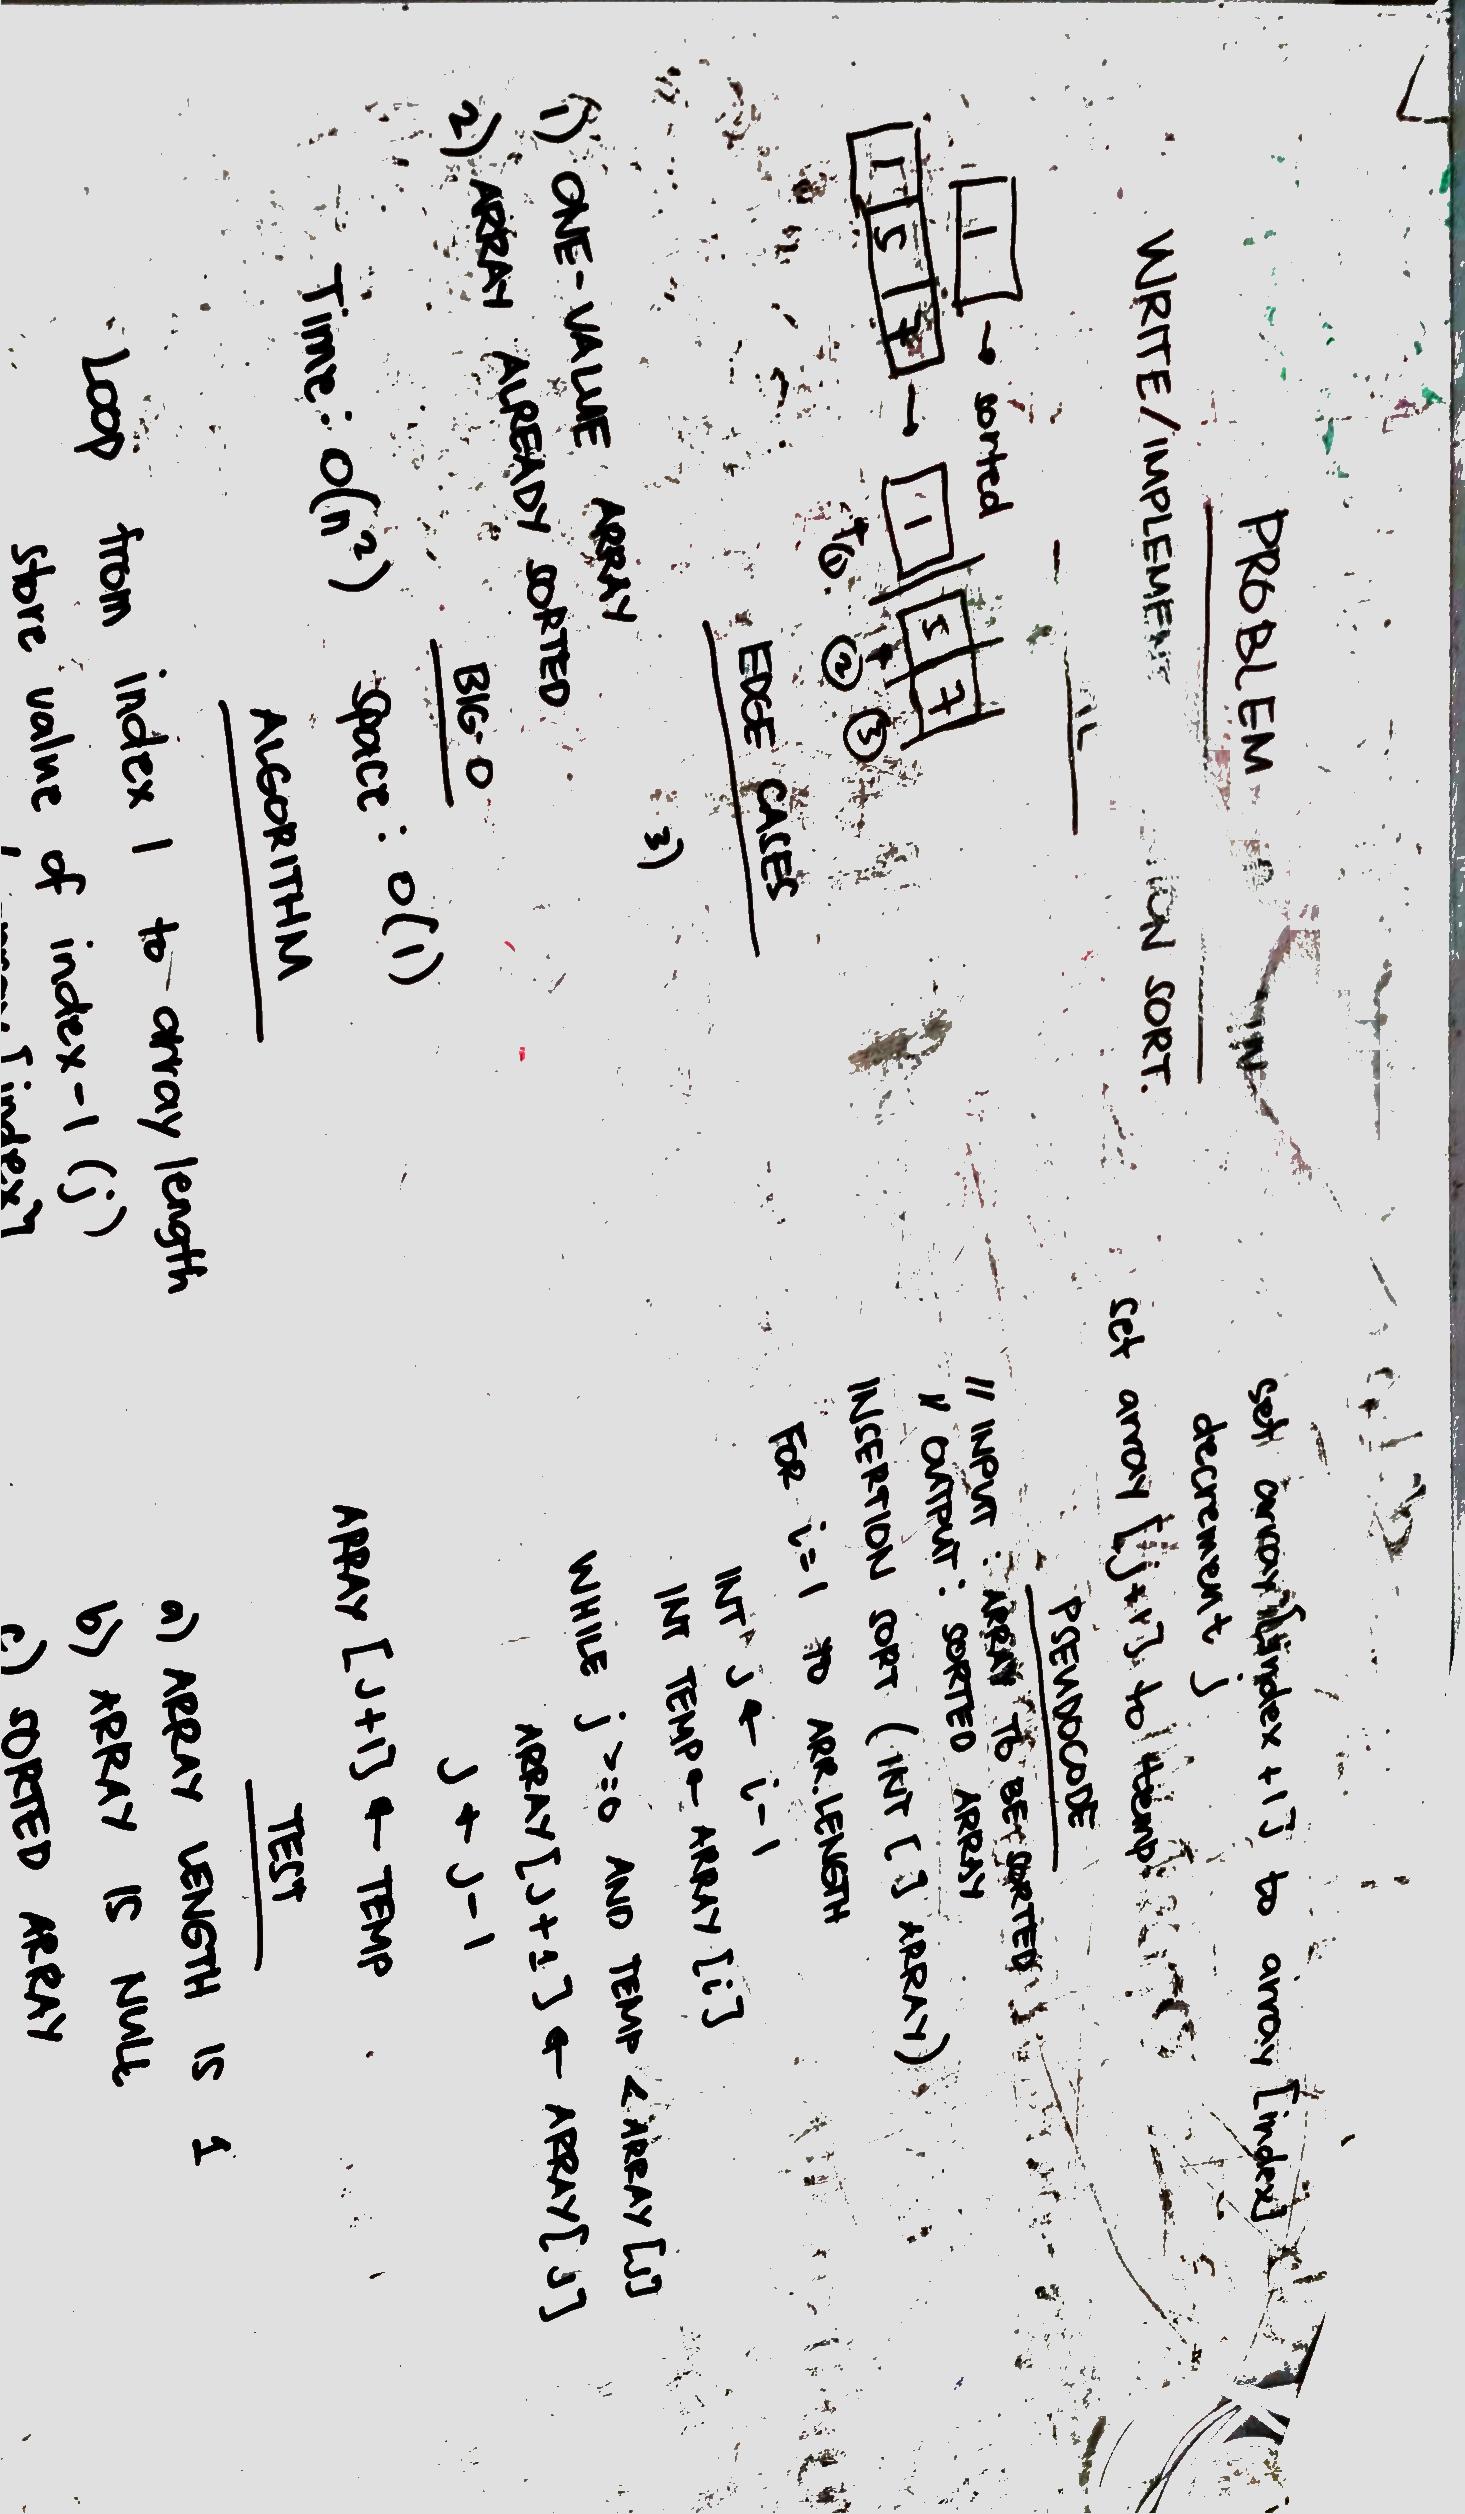 PROBLEM
WRITE/IMPLEMENT SORT.
1 → sorted
1 5 7 → 1 5 7
1 2 3
EDGE CASES
1) ONE-VALUE ARRAY
2) ARRAY ALREADY SORTED
3)
BIG-O
Time: O(n²) Space: O(1)
ALGORITHM
Loop from index 1 to array length
store value of index-1 (j)
array [index]
set array [index +1] to array [index]
decrement j
set array [j+1] to temp
PSEUDOCODE
// INPUT : ARRAY TO BE SORTED
// OUTPUT : SORTED ARRAY
INSERTION SORT (INT [] ARRAY)
FOR i=1 TO ARR.LENGTH
INT j ← i-1
INT TEMP ← ARRAY [i]
WHILE j >=0 AND TEMP < ARRAY [J]
ARRAY [J+1] ← ARRAY [J]
J ← J-1
ARRAY [J+1] ← TEMP
TEST
a) ARRAY LENGTH IS 1
b) ARRAY IS NULL
c) SORTED ARRAY